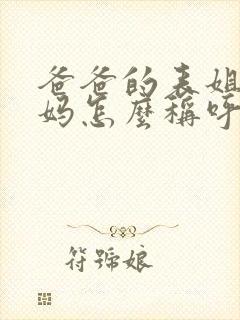 爸爸的表姐
妈怎麽稱呼
符號娘